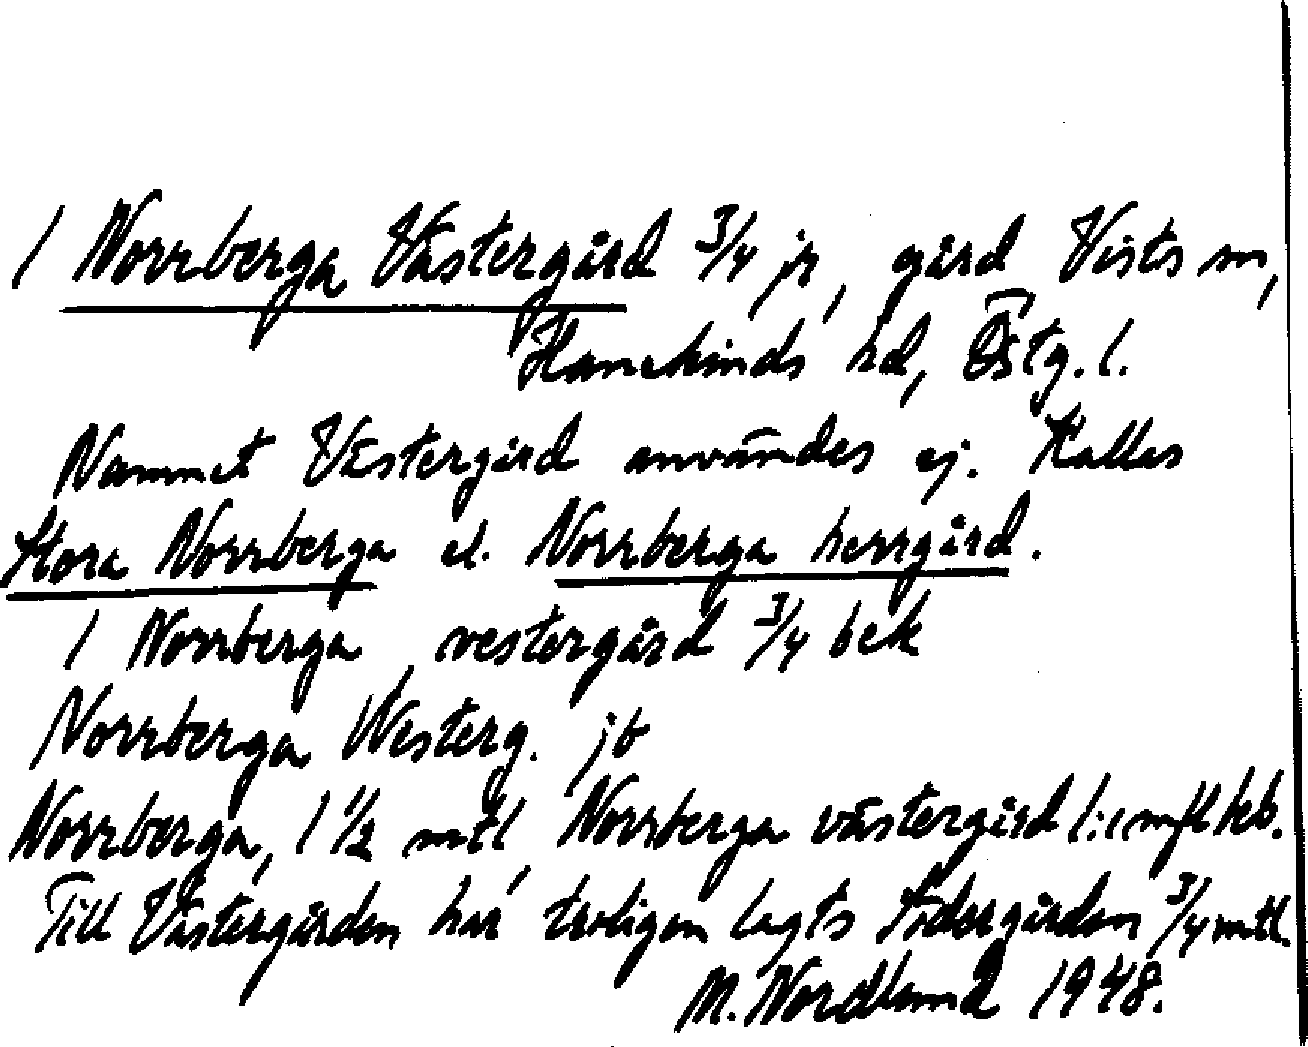 1 Norrberga Västergård 3/4 jr, gård Vists sn,
Hanekinds hd, Östg. l.
Namnet Västergård användes ej. Kallas
Stora Norrberga el. Norrberga herrgård.
1 Norrberga, vestergård 3/4 bek
Norrberga Westerg. jb
Norrberga, 1 1/2 mtl, Norrberga västergård
Till Västergården har troligen lagts Södergården 3/4 mtl.
M. Nordlund 1948.